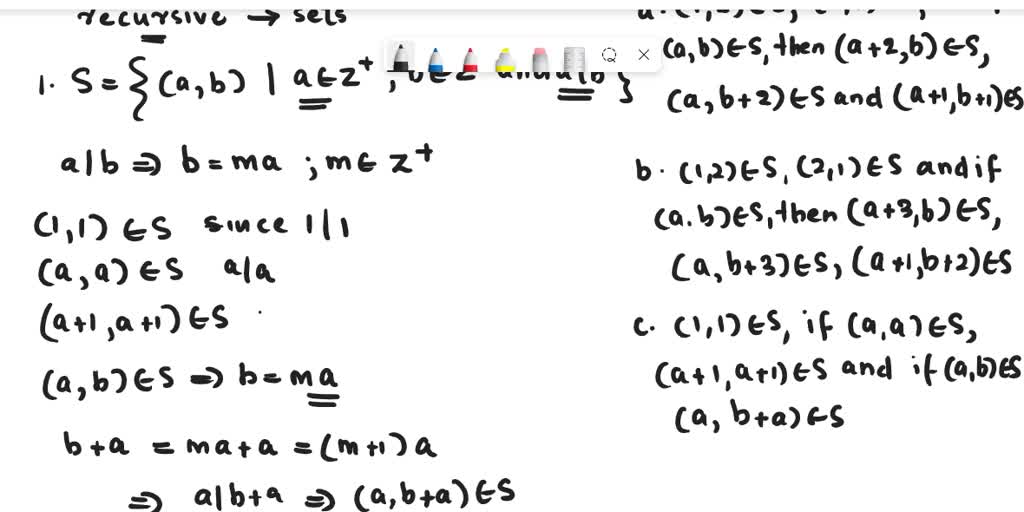 recursive → sets
1. S = {(a,b) | a∈z⁺, b∈z and a|b}
a|b ⇒ b = ma ; m∈z⁺
(1,1) ∈S since 1|1
(a,a) ∈S a|a
(a+1, a+1) ∈S
(a,b) ∈S ⇒ b = ma
b+a = ma+a = (m+1)a
⇒ a|b+a ⇒ (a,b+a) ∈S
(a,b) ∈S, then (a+2,b) ∈S,
(a,b+2) ∈S and (a+1,b+1) ∈S
b. (1,2) ∈S, (2,1) ∈S and if
(a.b) ∈S, then (a+3,b) ∈S,
(a,b+3) ∈S, (a+1,b+2) ∈S
c. (1,1) ∈S, if (a,a) ∈S,
(a+1,a+1) ∈S and if (a,b) ∈S
(a, b+a) ∈S